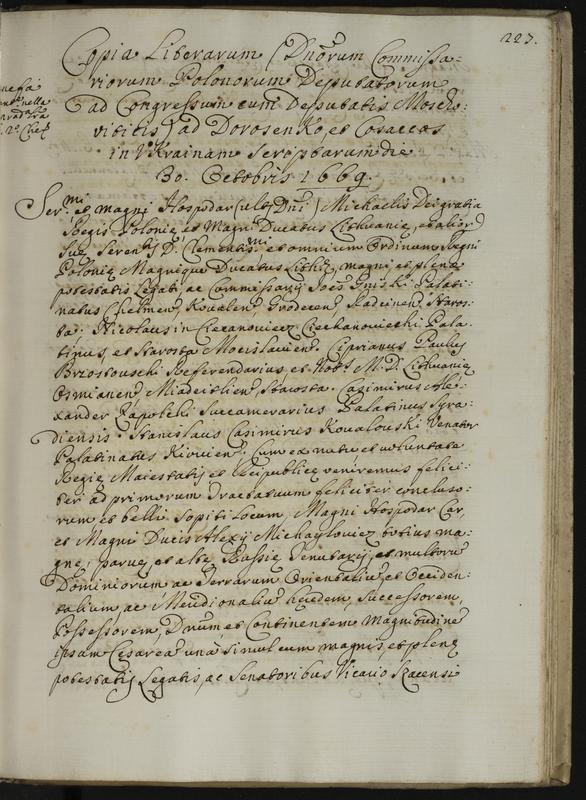 223.
Copia Literarum Dnorum Commissa-
riorum Polonorum Deputatorum
ad Congressum cum Deputatis Mosco-
viticis ad Dorosenko, et Cosaccos
in Ukrainam Scriptarum die
30. Octobris 1669.
Ser.mi et Magni Hospodar Dni Michaelis Dei gratia
Regis Polonię et Magni Ducatus Lithuanię, et alior
Suę Serentis D. Clementis.mi et omnium Ordinum Regni
Polonię Magnique Ducatus Lithię, magni et plenę
potestatis Legati, ac Commissarij Joes Gniski Palati-
natus Chelmen, Kovalen, Grodecen, Radcinen, Staros-
ta. Nicolaus in Ciecanoviecz Ciechanowiecki Pala-
tinus, et Starosta Mocislavien. Ciprianus Paulus
Brzostouschi Referendarius, et Not.s M. D. Lithuanię
Osmianen, Miadeitlien, Starosta. Casimirus Ale-
xander Zapolski Succamerarius Palatinus Syra-
diensis. Stanislaus Casimirus Kovalouski Venator
Palatinatus Kiovien. Cum ex nutu et voluntate
Regię Maiestatis et Reipublicę veniremus felici-
ter ad primorum Tractatuum feliciter concluso-
rum et belli sopiti locum, Magni Hospodar Car,
et Magni Ducis Alexij Michaylovicz totius ma-
gnę, parvę, et albę Russię et multorũ
Dominiorum ac Terrarum Orientaliũ et Occiden-
talium, ac Meridionaliũ heredem, Successorem,
Possessorem, Dnum et Continentem Magnitudine
ipsam Cesarea una simul cum magnis, et plenę
potestatis Legatis, ac Senatoribus Vicario